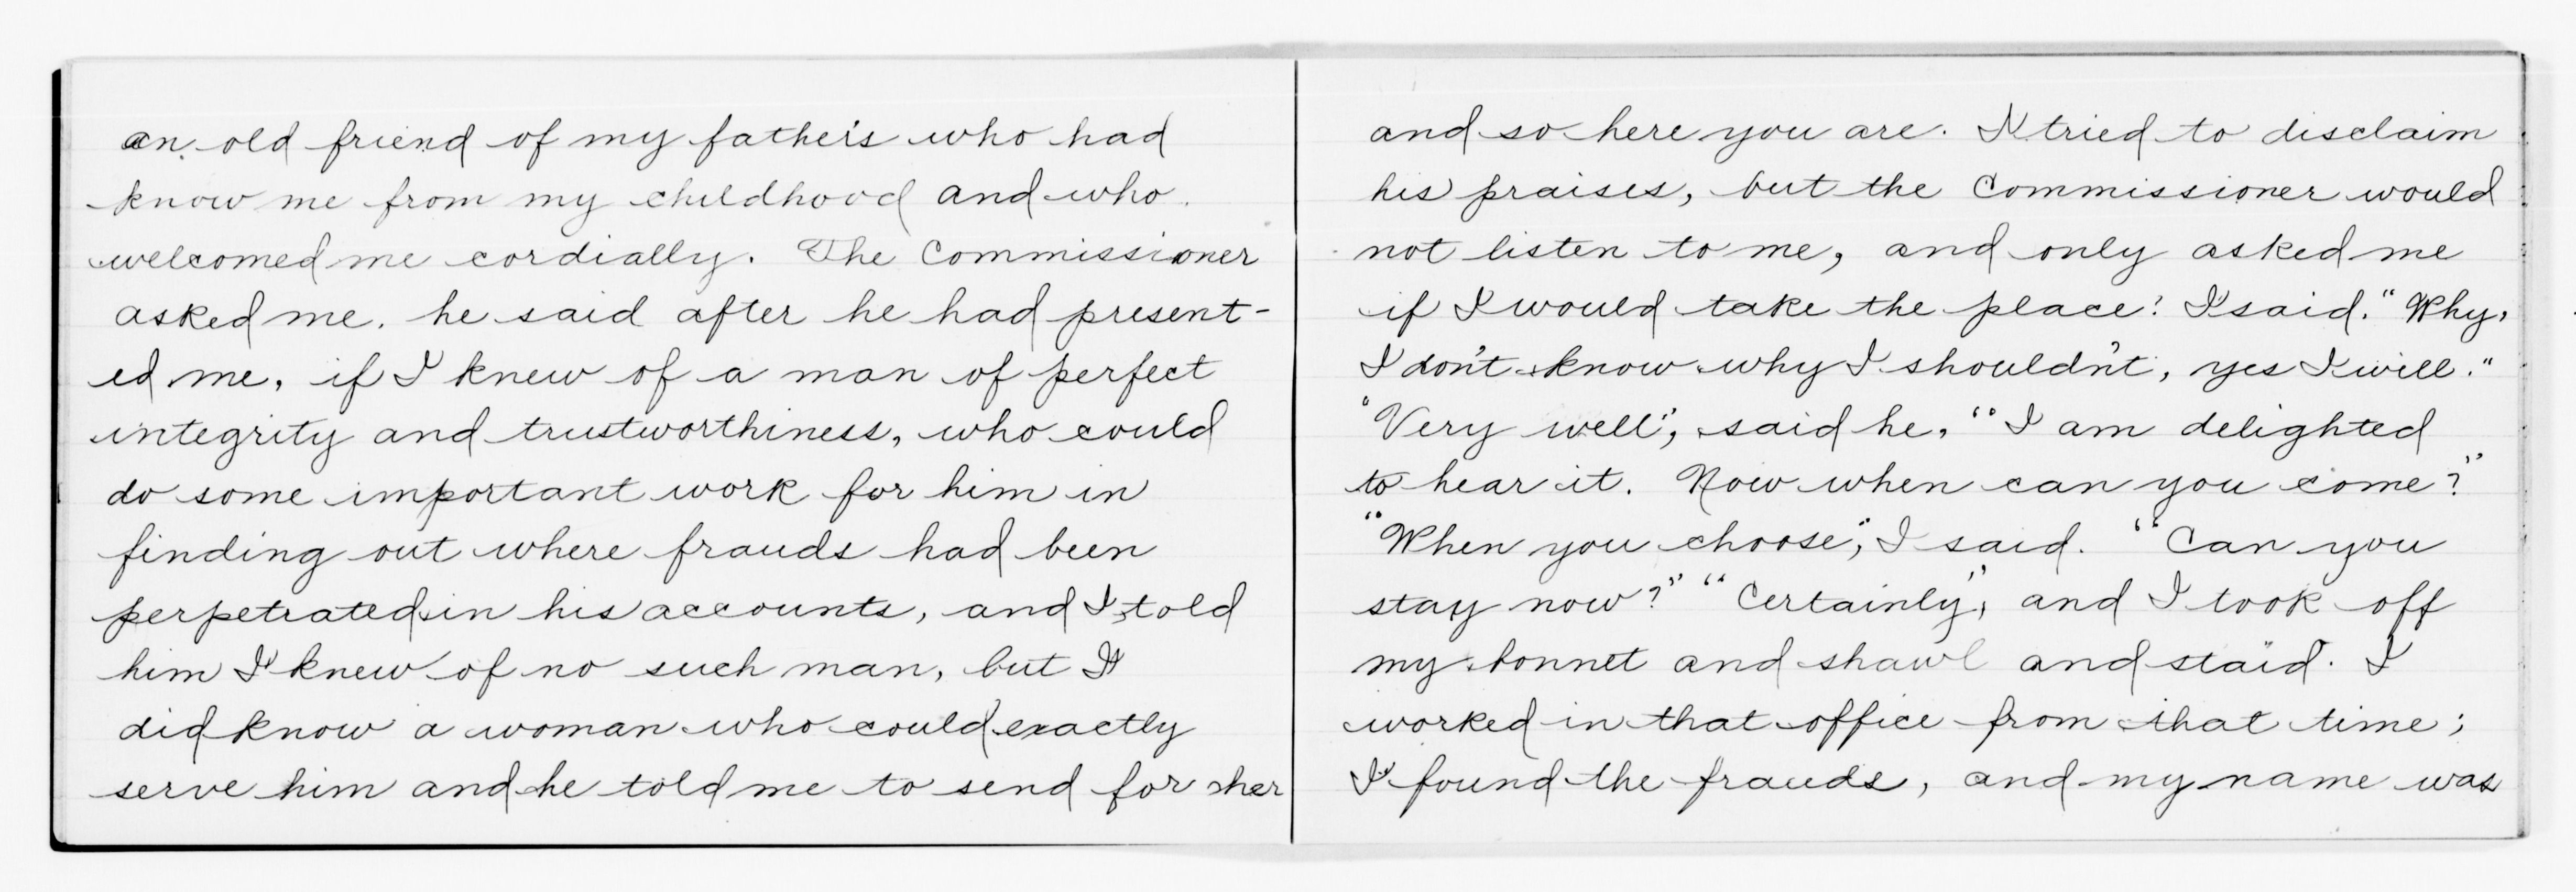 an old friend of my father's who had
know me from my childhood and who
welcomed me cordially. The Commissioner
asked me, he said after he had present-
ed me, if I knew of a man of perfect
integrity and trustworthiness, who could
do some important work for him in
finding out where frauds had been
perpetrated in his accounts, and I told
him I knew of no such man, but I
did know a woman who could exactly
serve him and he told me to send for her
and so here you are. I tried to disclaim
his praises, but the Commissioner would
not listen to me, and only asked me
if I would take the place? I said. "Why,
I don't know why I shouldn't, yes I will."
"Very well", said he, "I am delighted
to hear it. Now when can you come?"
"When you choose", I said. "Can you
stay now?" "Certainly", and I took off
my bonnet and shawl and staid. I
worked in that office from that time;
I found the frauds, and my name was